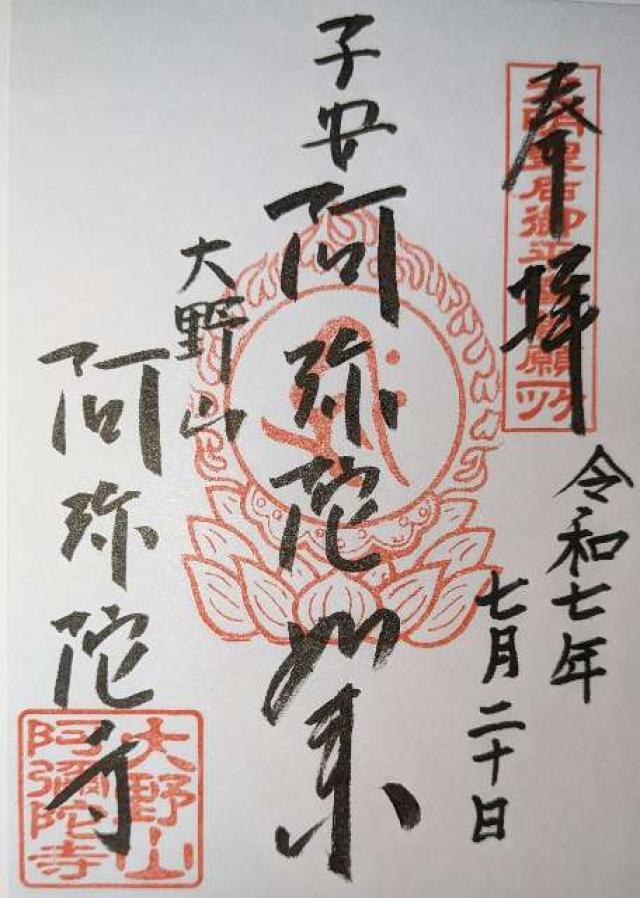 奉拝
光明皇后御平 願所
令和七年
七月二十日
子安阿弥陀如来
大野山
阿弥陀寺
大野山
阿彌陀寺